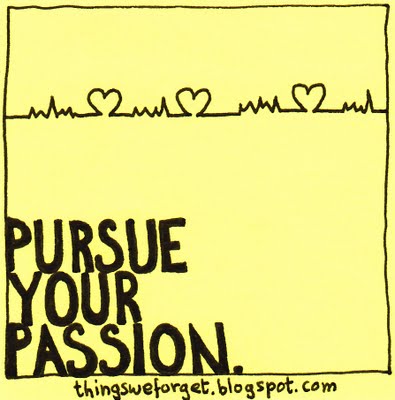 PURSUE
YOUR
PASSION.
thingsweforget.blogspot.com